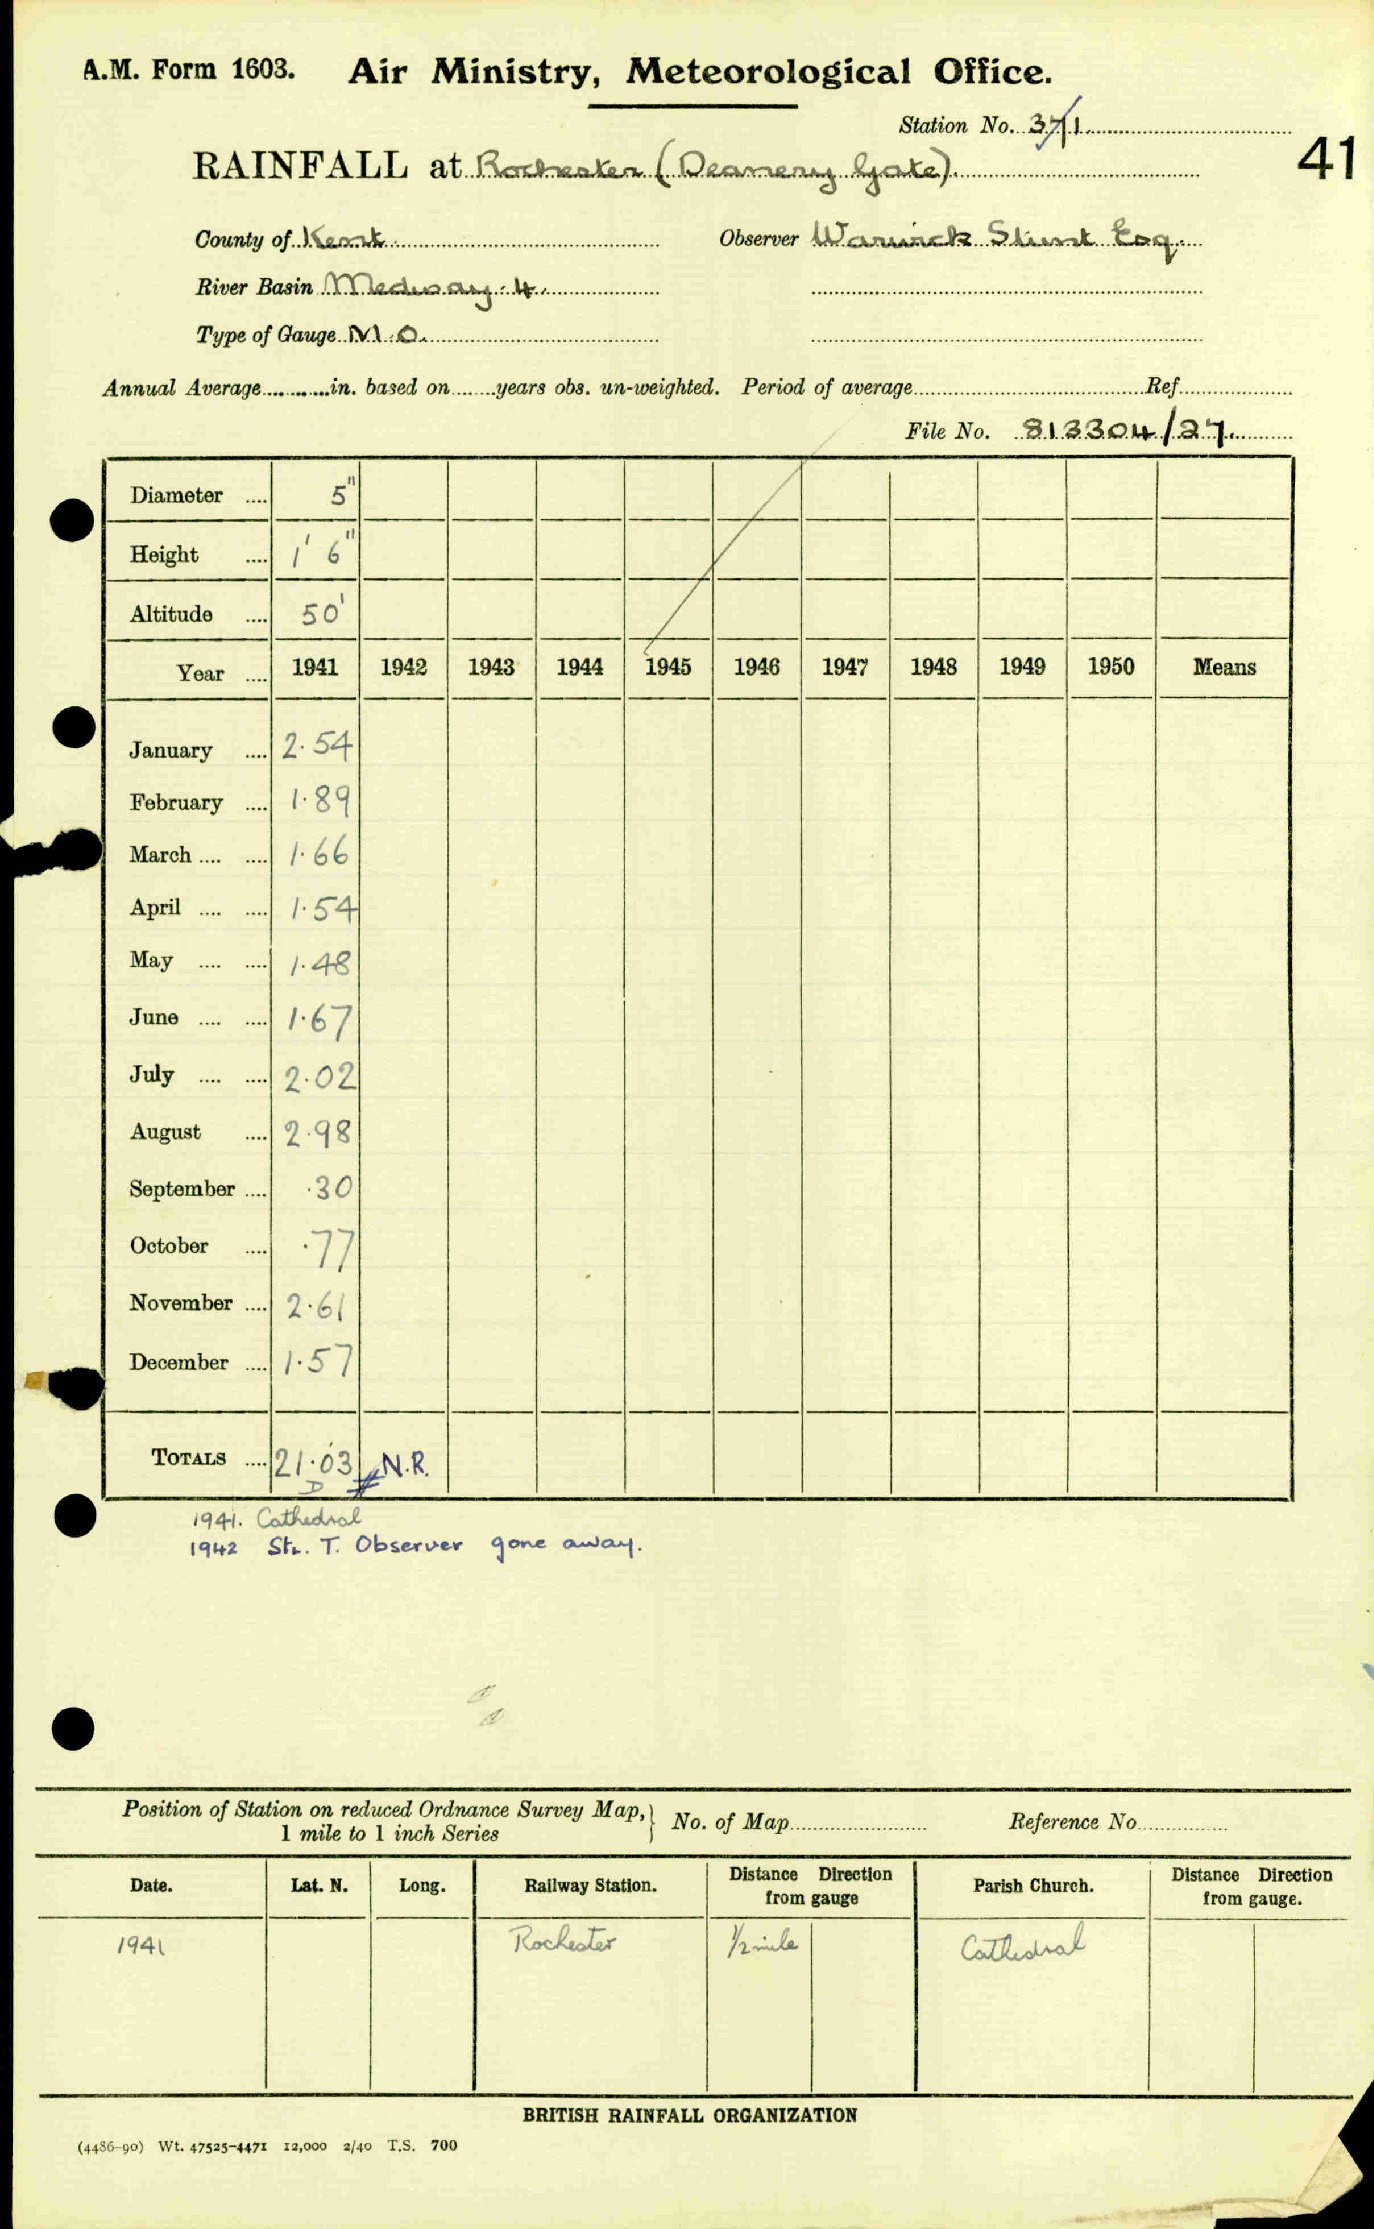 A.M. Form 1603. Air Ministry, Meteorological Office.
Station No. 371
41
RAINFALL at Rochester (Deanery Gate)
County of Kent Observer Warwick Stunt Esq.
River Basin Medway. 4.
Type of Gauge M.O.
Annual Average in. based on years obs. un-weighted. Period of average Ref
File No. 813304/27.
Diameter 5"
Height 1' 6"
Altitude 50'
Year 1941 1942 1943 1944 1945 1946 1947 1948 1949 1950 Means
January 2.54
February 1.89
March 1.66
April 1.54
May 1.48
June 1.67
July 2.02
August 2.98
September .30
October .77
November 2.61
December 1.57
TOTALS 21.03 N.R.
D
1941. Cathedral
1942 Stn. T. Observer gone away.
Position of Station on reduced Ordnance Survey Map, 1 mile to 1 inch Series } No. of Map Reference No
Date. Lat. N. Long. Railway Station. Distance Direction from gauge Parish Church. Distance Direction from gauge.
1941 Rochester 1/2 mile Cathedral
BRITISH RAINFALL ORGANIZATION
(4486-90) Wt. 47525-4471 12,000 2/40 T.S. 700